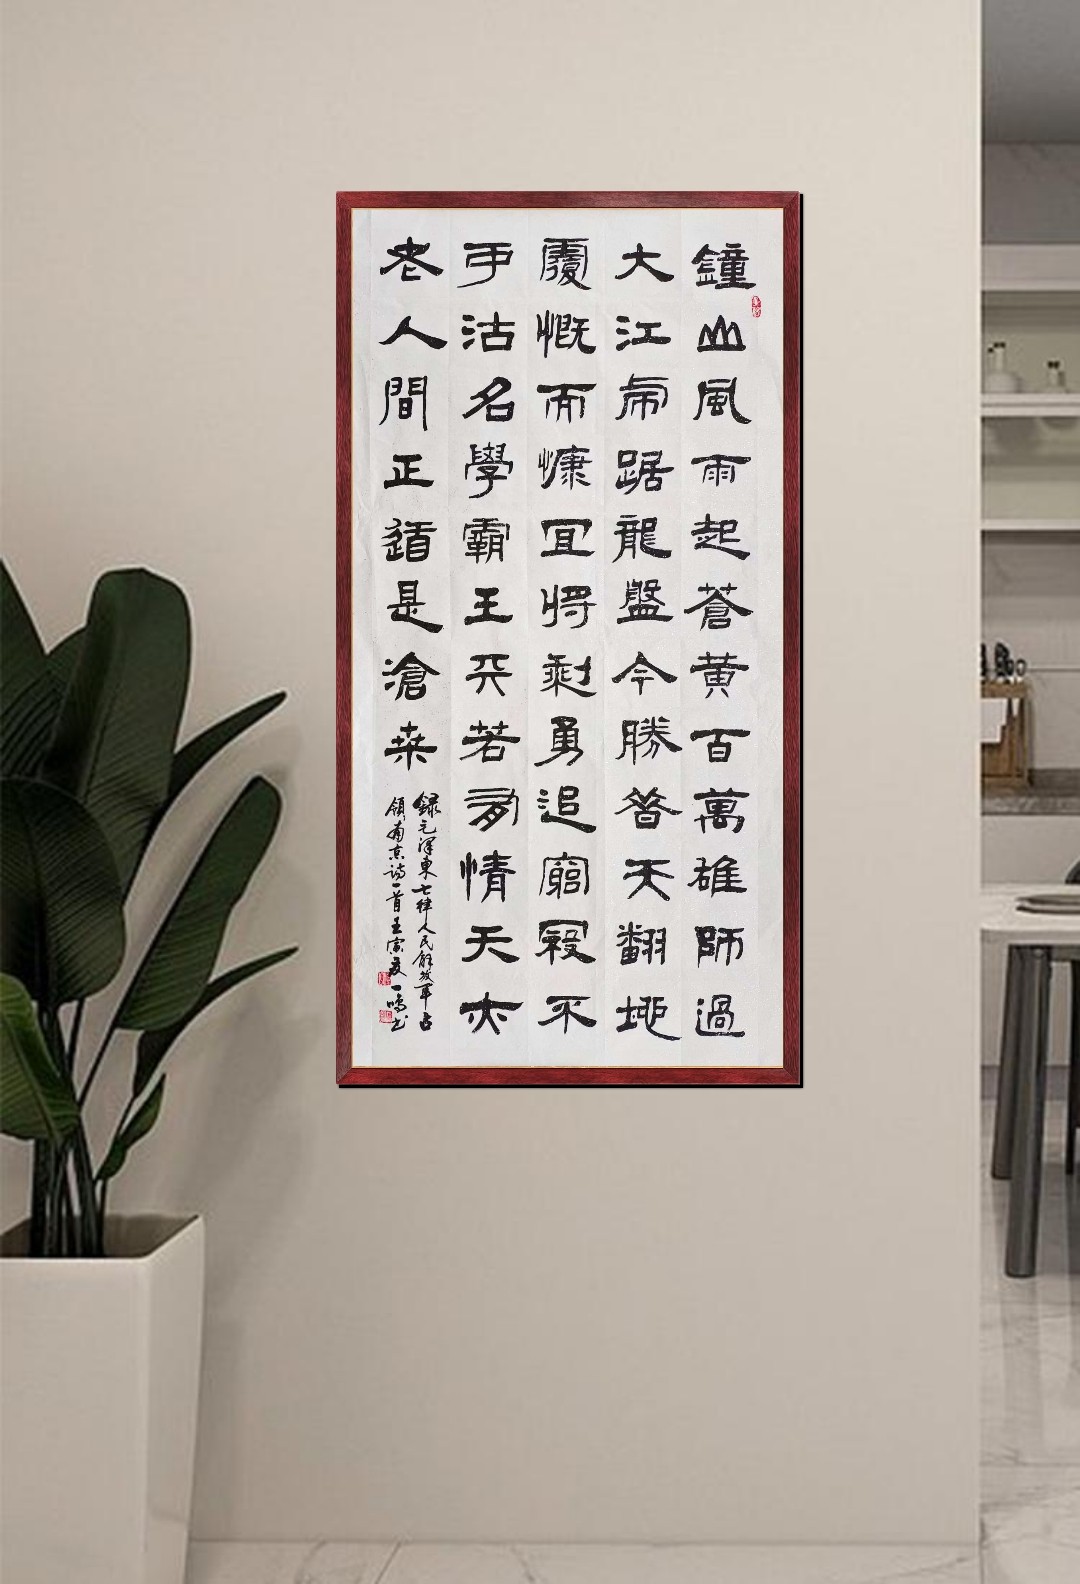 鐘山風雨起蒼黃百萬雄師過
大江虎踞龍盤今勝昔天翻地
覆慨而慷宜將剩勇追窮寇不
可沽名學霸王天若有情天亦
老人間正道是滄桑
錄毛澤東七律人民解放軍占
領南京詩一首壬寅夏一鳴书